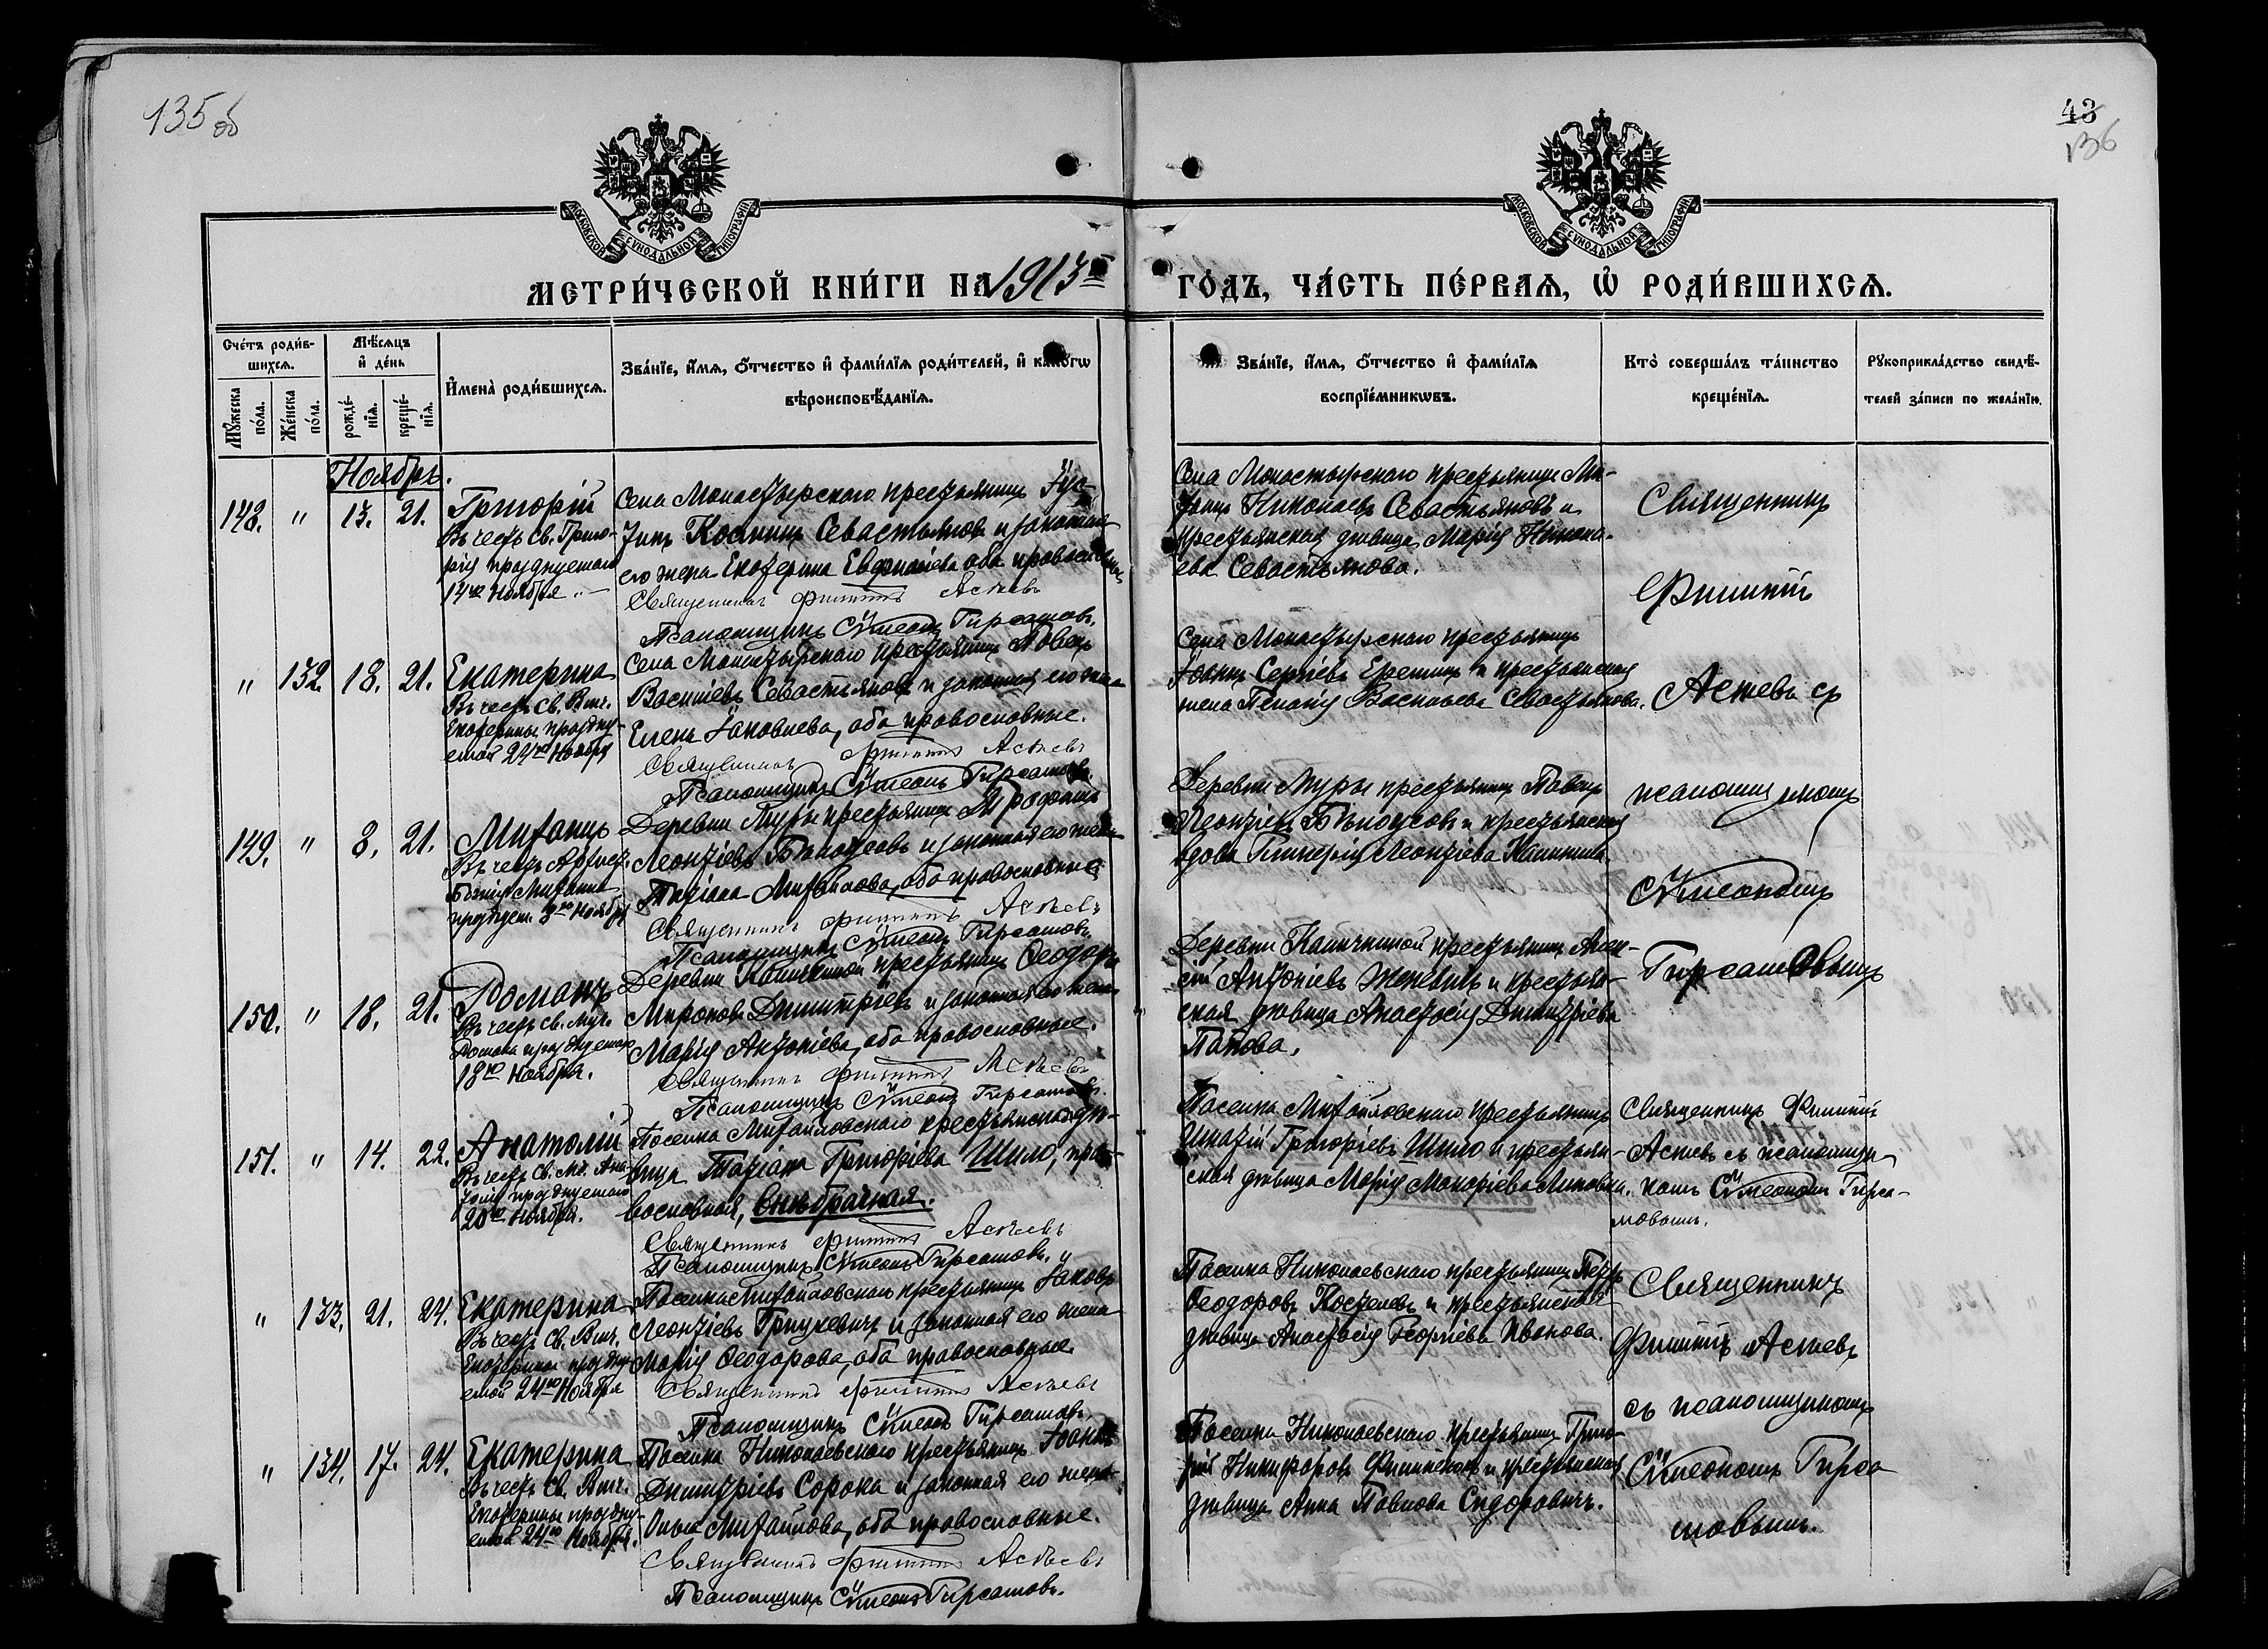 135 об
43
136
МОСКОВСКОЙ СУНОДАЛЬНОЙ ТИПОГРАФІИ
МОСКОВСКОЙ СУНОДАЛЬНОЙ ТИПОГРАФІИ
МЕТРИ́ЧЕСКОЙ КНИ́ГИ НА 1913й ГО́ДЪ, ЧА́СТЬ ПЕ́РВАѦ, Ѡ҆ РОДИ́ВШИХСѦ.
Сче́тъ роди́в-
шихсѧ.
Мѣ́сѧцъ
и҆ де́нь
И҆мена̀ роди́вшихсѧ.
Зва́нїе, и҆́мѧ, ѻ҆́тчество и҆ фами́лїѧ роди́телей, и҆ како́гѡ
вѣроисповѣ́данїѧ.
Зва́нїе, и҆́мѧ, ѻ҆́тчество и҆ фами́лїѧ
воспрїе́мникѡвъ.
Кто̀ соверша́лъ та́инство
креще́нїѧ.
Рꙋкоприкла́дство свидѣ́-
телей за́писи по жела́нїю.
Мꙋ́жеска
по́ла.
Же́нска
по́ла.
рожде́-
нїѧ.
креще́-
нїѧ.
Ноябрь.
148. " 13. 21.
Григорій
Въ честь св. Григо-
рія празднуемаго
14го Ноября
Села Монастырскаго крестьянинъ Іус-
тинъ Косминъ Севастьяновъ и законная
его жена Екатерина оба православные
Священникъ Филиппъ Астьевъ
Псаломщикъ Сѵмеонъ Гирсамовъ.
Села Монастырскаго крестьянинъ
Николаевъ Севастьяновъ и
крестьянская дѣвица Марія Никола-
ева Севастьянова.
Священникъ
Филиппъ
" 132. 18. 21.
Екатерина
Въ честь св. Вмч.
Екатерины праздну-
емой 24го Ноября
Села Монастырскаго крестьянинъ Павелъ
Васильевъ Севастьяновъ и законная его жена
Елена Іаковлева, оба православные.
Священникъ Филиппъ Астьевъ
Псаломщикъ Сѵмеонъ Гирсамовъ.
Села Монастырскаго крестьянинъ
Іоаннъ Сергіевъ Ереминъ и крестьянская
жена Пелагія Васильева Севастьянова.
Астьевъ съ
149. " 8. 21.
Михаилъ
Въ честь Архист.
Божія Михаила
празднуем. 8го Ноября
Деревни Муры крестьянинъ Трофимъ
Леонтіевъ Бѣлоусовъ и законная его жена
Татіана Михайлова, оба православные
Священникъ Филиппъ Астьевъ
Псаломщикъ Сѵмеонъ Гирсамовъ.
Деревни Муры крестьянинъ Павелъ
Леонтіевъ Бѣлоусовъ и крестьянская
вдова Гликерія Леонтіева Калинина.
псаломщикомъ
Сѵмеономъ
150. " 18. 21.
Романъ
Въ честь св. Муч.
Романа празднуемаго
18го Ноября.
Деревни крестьянинъ Ѳеодоръ
Мироновъ Димитріевъ и законная его жена
Марія Антоніева, оба православные.
Священникъ Филиппъ Астьевъ
Псаломщикъ Сѵмеонъ Гирсамовъ.
Деревни крестьянинъ Алек-
сій Антоніевъ и крестьян-
ская дѣвица Анастасія Димитріева
Попова.
Гирсамовымъ
151. " 14. 22.
Анатолій
Въ честь Св. Мч. Ана-
толія празднуемаго
20го Ноября.
Поселка Михайловскаго крестьянская дѣ-
вица Татіана Григоріева Шило, пра-
вославная, внѣбрачная.
Священникъ Филиппъ Астьевъ
Псаломщикъ Сѵмеонъ Гирсамовъ.
Поселка Михайловскаго крестьянинъ
Игнатій Григоріевъ Шило и крестьян-
ская дѣвица Марія Макаріева
Священникъ Филиппъ
Астьевъ съ псаломщи-
комъ Сѵмеономъ Гирса-
мовымъ.
" 133. 21. 24.
Екатерина
Въ честь Св. Вмч.
Екатерины праздну-
емой 24го Ноября
Поселка Михайловскаго крестьянинъ Іаковъ
Леонтіевъ Грицкевичъ и законная его жена
Марія Ѳеодорова, оба православные.
Священникъ Филиппъ Астьевъ
Псаломщикъ Сѵмеонъ Гирсамовъ.
Поселка Николаевскаго крестьянинъ Петръ
Ѳеодоровъ и крестьянская
дѣвица Анастасія Георгіева Иванова.
Священникъ
Филиппъ Астьевъ
съ псаломщикомъ
" 134. 17. 24.
Екатерина
Въ честь Св. Вмч.
Екатерины праздну-
емой 24го Ноября.
Поселка Николаевскаго крестьянинъ Іоаннъ
Димитріевъ Сорока и законная его жена
Ольга Михайлова, оба православные.
Священникъ Филиппъ Астьевъ
Псаломщикъ Сѵмеонъ Гирсамовъ.
Поселка Николаевскаго крестьянинъ Григо-
рій Никифоровъ и крестьянская
дѣвица Анна Павлова Сидоровичъ.
Сѵмеономъ Гирса
мовымъ.